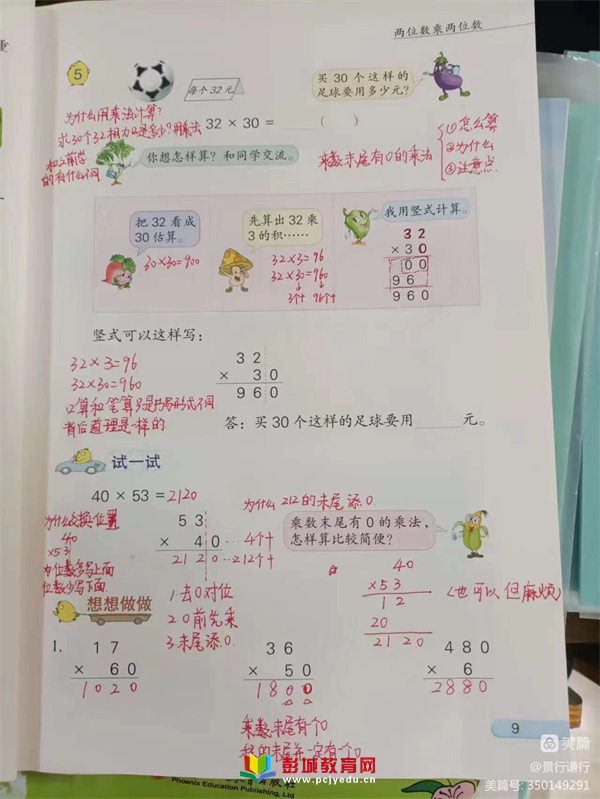 两位数乘两位数
5
每个32元
买30个这样的
足球要用多少元?
为什么用乘法计算?
求30个32相加是多少?用乘法
32 × 30 = ( )
和之前学
的有什么不同
你想怎样算? 和同学交流。
乘数末尾有0的乘法
①怎么算
②为什么
③注意点
把32看成
30估算。
30×30=900
先算出32乘
3的积……
32×3=96
32×30=960
3个十 96个十
我用竖式计算。
32
×30
00
96
960
竖式可以这样写:
32×3=96
32×30=960
口算和笔算只是书写形式不同
背后道理是一样的
32
× 30
960
答: 买30个这样的足球要用 元。
试一试
40 × 53 = 2120
为什么212的末尾添0.
为什么交换位置
40
×53
位数多写上面
位数少写下面
53
× 40 …4个十
2120 …212个十
乘数末尾有0的乘法,
怎样算比较简便?
1.去0对位
2.0前先乘
3.末尾添0.
40
×53
12
20
2120
(也可以但麻烦)
想想做做
1.
17
× 60
1020
36
× 50
1800
480
× 6
2880
乘数末尾有个0
积的末尾不一定有一个0
9
美篇
@景行谦行
美篇号: 350149291
彭城教育网
www.pcjyedu.cn
Phoenix Education Publishing, Ltd